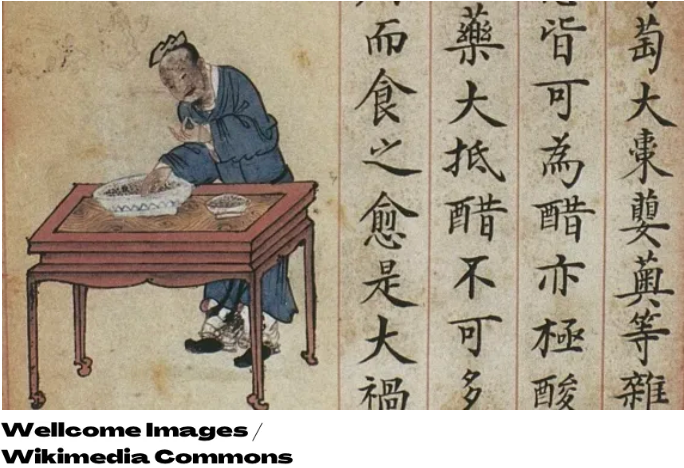 萄大棗蘡薁等雜
皆可為醋亦極酸
藥大抵醋不可多
而食之愈是大禍
Wellcome Images /
Wikimedia Commons